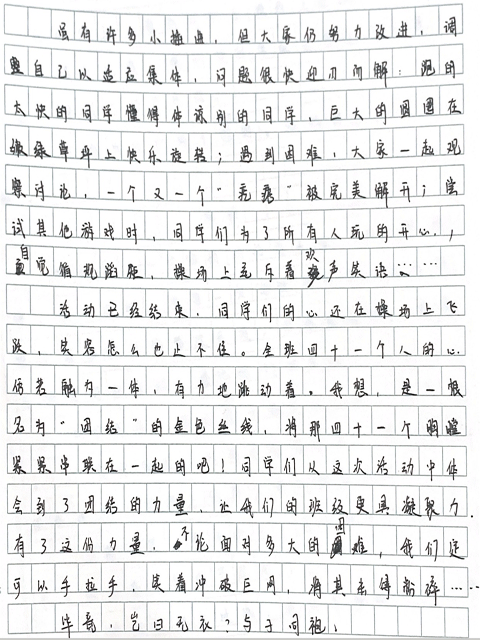 虽有许多小插曲，但大家仍努力改进，调
整自己以适应集体，问题很快迎刃而解：跑的
太快的同学懂得体谅别的同学，巨大的圆圈在
绿绿草坪上快乐旋转；遇到困难，大家一起观
察讨论，一个又一个“秃秃”被完美解开；尝
试其他游戏时，同学们为了所有人玩的开心，
自觉循规蹈矩，操场上充斥着欢声笑语……
活动已经结束，同学们的心还在操场上飞
跃，笑容怎么也止不住。全班四十一个人的心
仿若融为一体，有力地跳动着。我想，是一根
名为“团结”的金色丝线，将那四十一个胸膛
紧紧串联在一起的吧！同学们从这次活动中体
会到了团结的力量，让我们的班级更具凝聚力。
有了这份力量，不论面对多大的困难，我们定
可以手拉手，笑着冲破巨网，将其击得粉碎……
毕竟，岂曰无衣？与子同袍。